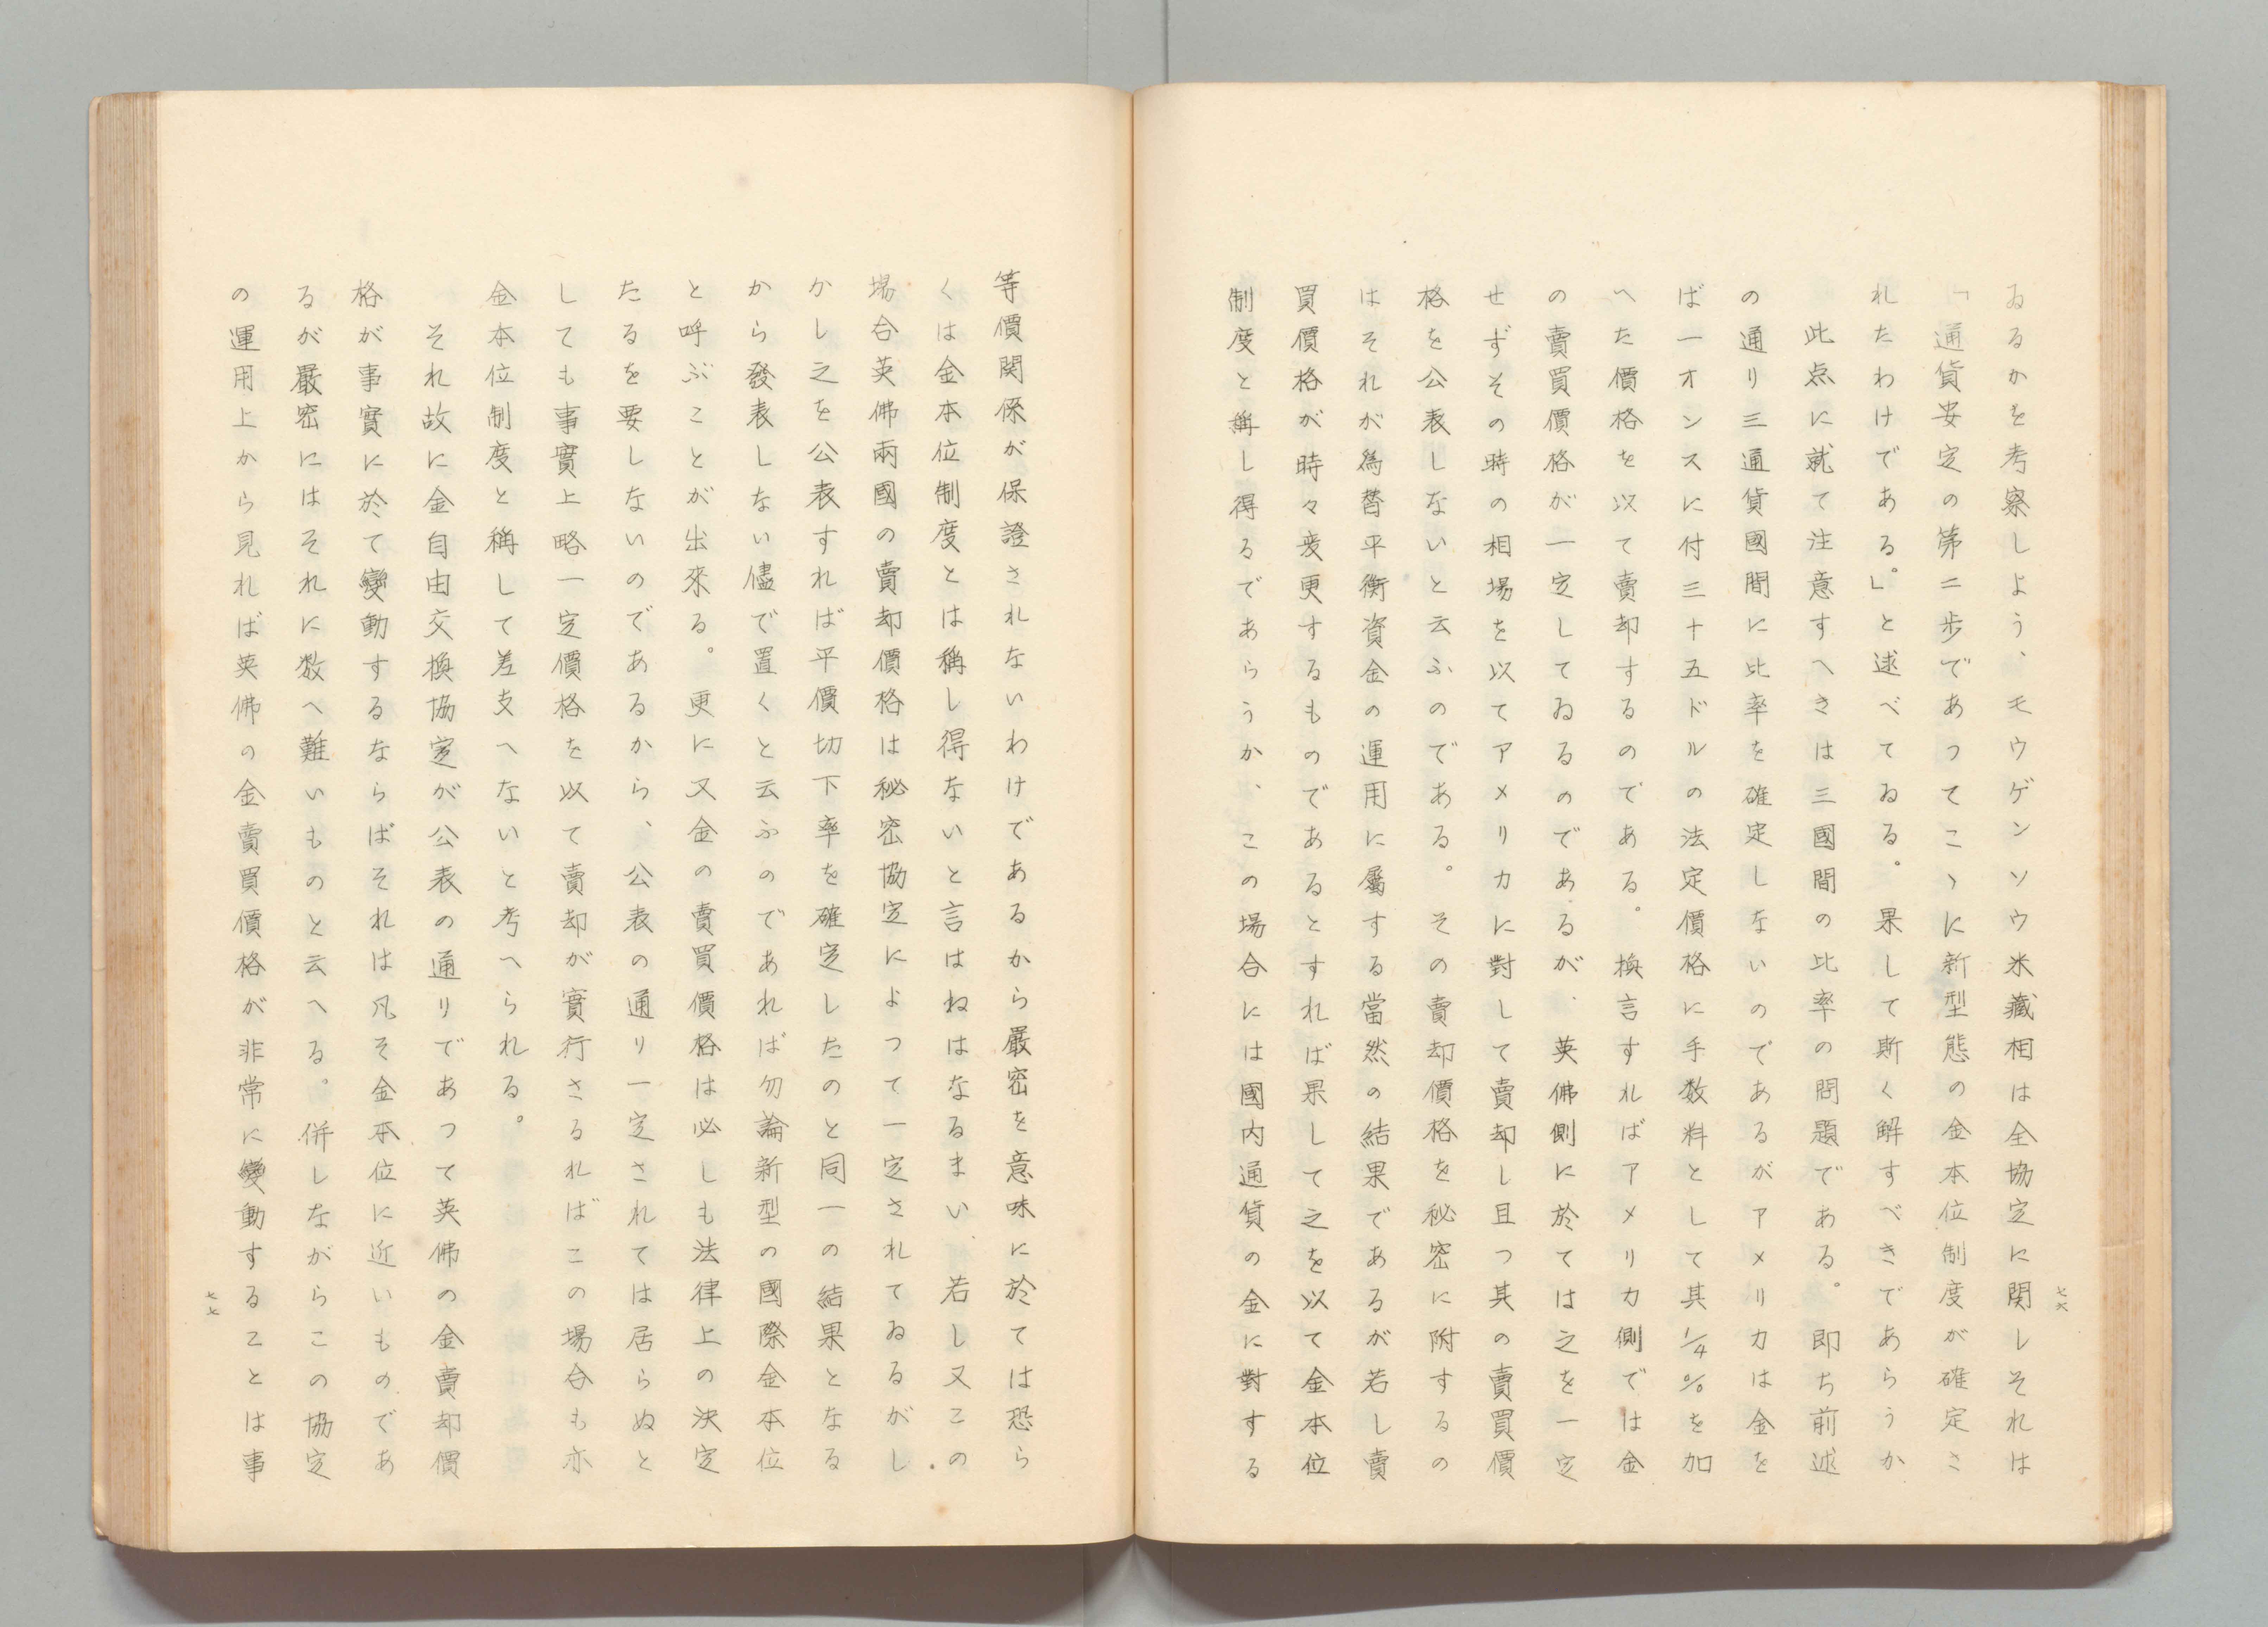 ゐるかを考察しよう、モウゲンソウ米藏相は全協定に関しそれは
「通貨安定の第二歩であってこゝに新型態の金本位制度が確定さ
れたわけである。」と逑べてゐる。果して斯く解すべきであらうか
此点に就て注意すへきは三國間の比率の問題である。即ち前述
の通り三通貨國間に比率を確定しないのであるがアメリカは金を
ば一オンスに付三十五ドルの法定價格に手数料として其1/4%を加
へた價格を以て賣却するのである。換言すればアメリカ側では金
の賣買價格が一定してゐるのであるが、英佛側に於ては之を一定
せずその時の相場を以てアメリカに對して賣却し且つ其の賣買價
格を公表しないと云ふのである。その賣却價格を秘密に附するの
はそれが為替平衡資金の運用に屬する當然の結果であるが若し賣
買價格が時々変更するものであるとすれば果して之を以て金本位
制度と稱し得るであらうか、この場合には國内通貨の金に對する
七六
等價関係が保證されないわけであるから嚴密を意味に於ては恐ら
くは金本位制度とは稱し得ないと言はねはなるまい、若し又この
場合英佛兩國の賣却價格は秘密協定によって一定されてゐるがし
かし之を公表すれば平價切下率を確定したのと同一の結果となる
から發表しない儘で置くと云ふのであれば勿論新型の國際金本位
と呼ぶことが出來る。更に又金の賣買價格は必しも法律上の決定
たるを要しないのであるから、公表の通り一定されては居らぬと
しても事實上略一定價格を以て賣却が實行さるればこの場合も亦
金本位制度と稱して差支へないと考へられる。
それ故に金自由交換協定が公表の通りであって英佛の金賣却價
格が事實に於て變動するならばそれは凡そ金本位に近いものであ
るが嚴密にはそれに数へ難いものと云へる。併しながらこの協定
の運用上から見れば英佛の金賣買價格が非常に變動することは事
七七